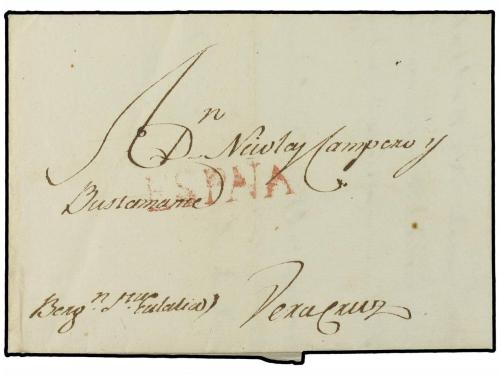 A Dn Nicolas Campero y
ESPNA
Bustamante
Bergn Sta Eulalia
VeraCruz